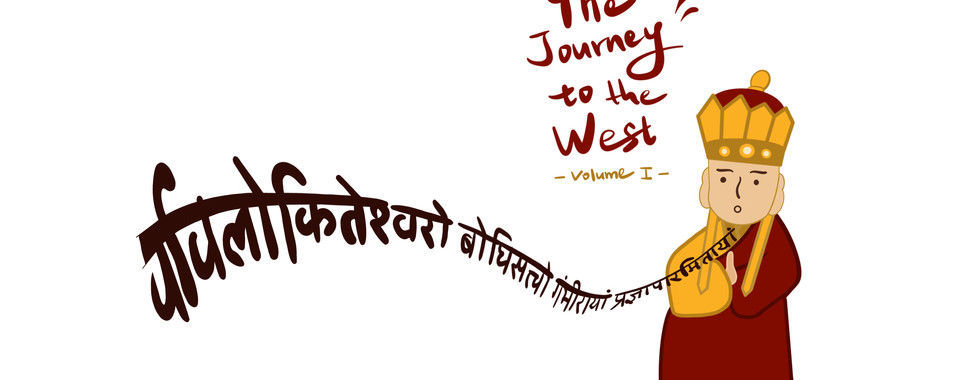 The
Journey
to the
West
- Volume I -
र्यावलोकितेश्वरो बोधिसत्त्वो गंभीरायां प्रज्ञापारमितायां